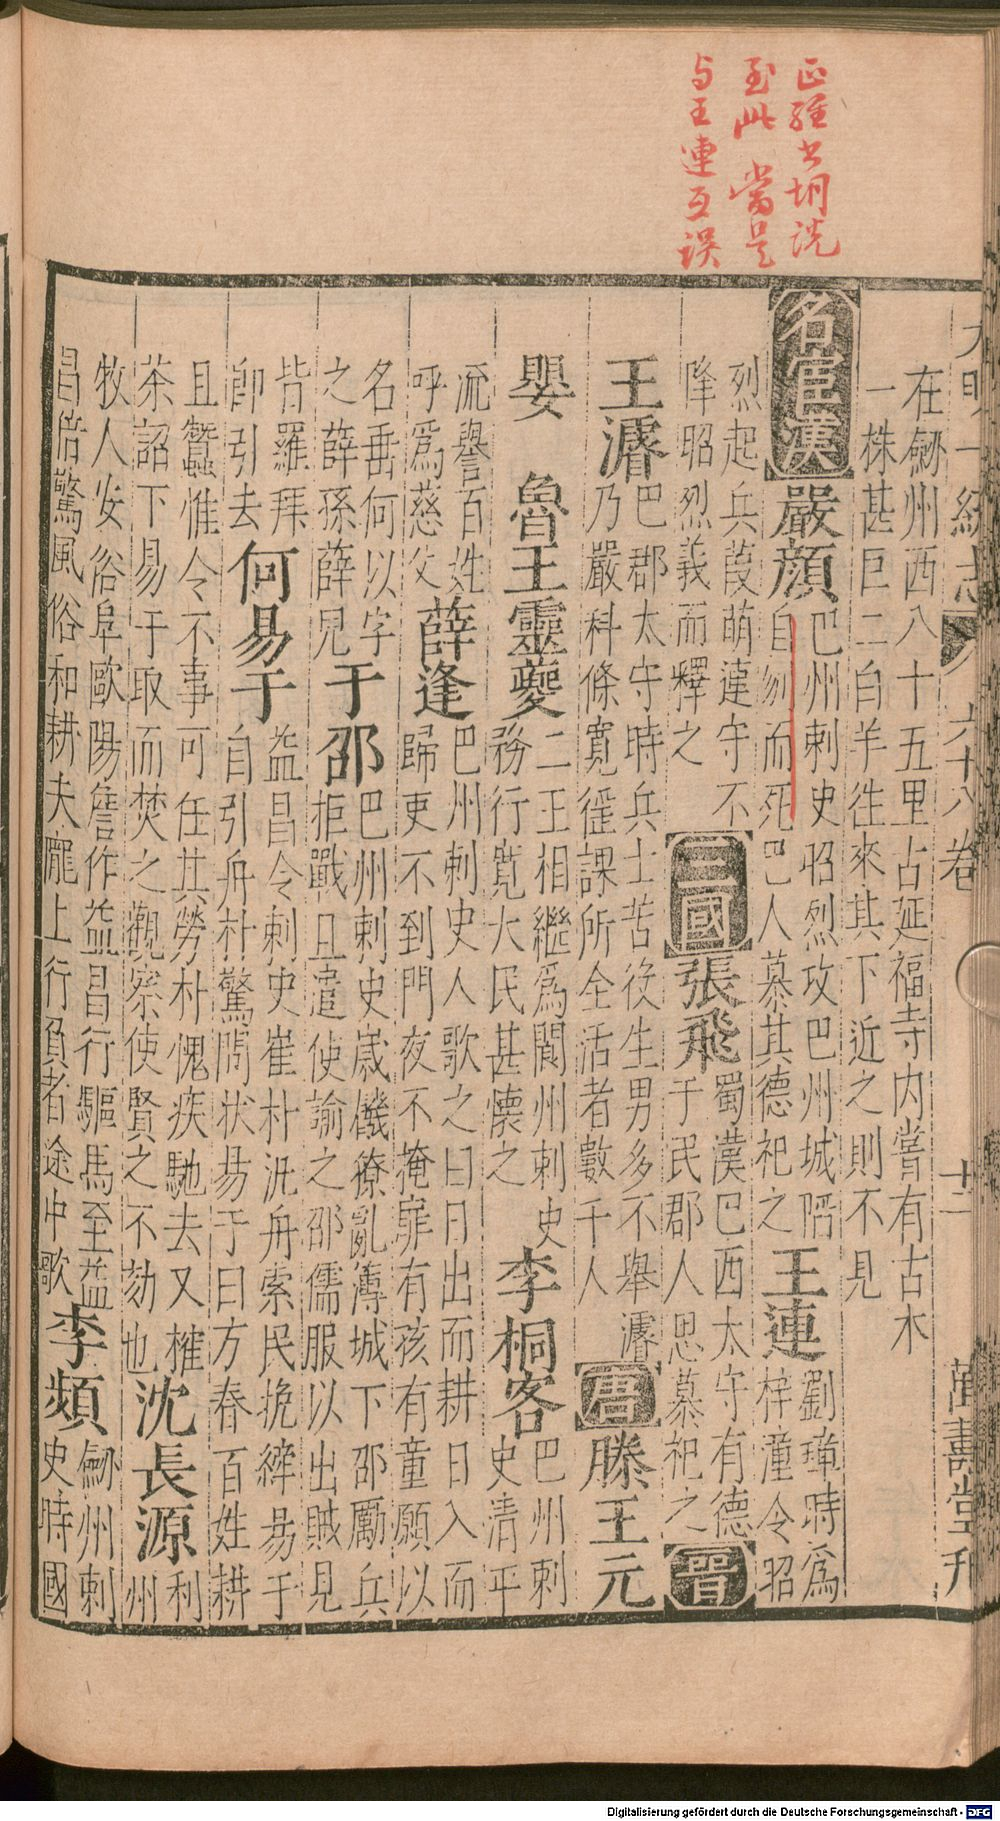 至此當是
与王連互誤
大明一統志 六十八卷 十二 萬壽堂刋
在劒州西八十五里古延福寺内嘗有古木
一株甚巨二白羊徃來其下近之則不見
名宦漢
嚴顔
巴州刺史昭烈攻巴州城陷
自刎而死巴人慕其德祀之
王連
劉璋時爲
梓潼令昭
烈起兵葭萌連守不
降昭烈義而釋之
三國
張飛
蜀漢巴西太守有德
于民郡人思慕祀之
晉
王濬
巴郡太守時兵士苦役生男多不舉濬
乃嚴科條寛徭課所全活者數千人
唐
滕王元
嬰
魯王靈夔
二王相繼爲閬州刺史
務行寛大民甚懷之
李桐客
巴州刺
史清平
流譽百姓
呼爲慈父
薛逢
巴州刺史人歌之曰日出而耕日入而
歸吏不到門夜不掩扉有孩有童願以
名垂何以字
之薛孫薛兒
于邵
巴州刺史歲饑獠亂薄城下邵勵兵
拒戰且遣使諭之邵儒服以出賊見
皆羅拜
卽引去
何易于
益昌令刺史崔朴汎舟索民挽繂昜于
自引舟朴驚問狀昜于曰方春百姓耕
且蠶惟令不事可任其勞朴愧疾馳去又榷
茶詔下易于取而焚之觀察使賢之不劾也
沈長源
利
州
牧人安俗阜歐陽詹作益昌行驅馬至益
昌倍驚風俗和耕夫隴上行負者途中歌
李頻
劒州刺
史時國
Digitalisierung gefördert durch die Deutsche Forschungsgemeinschaft - DFG